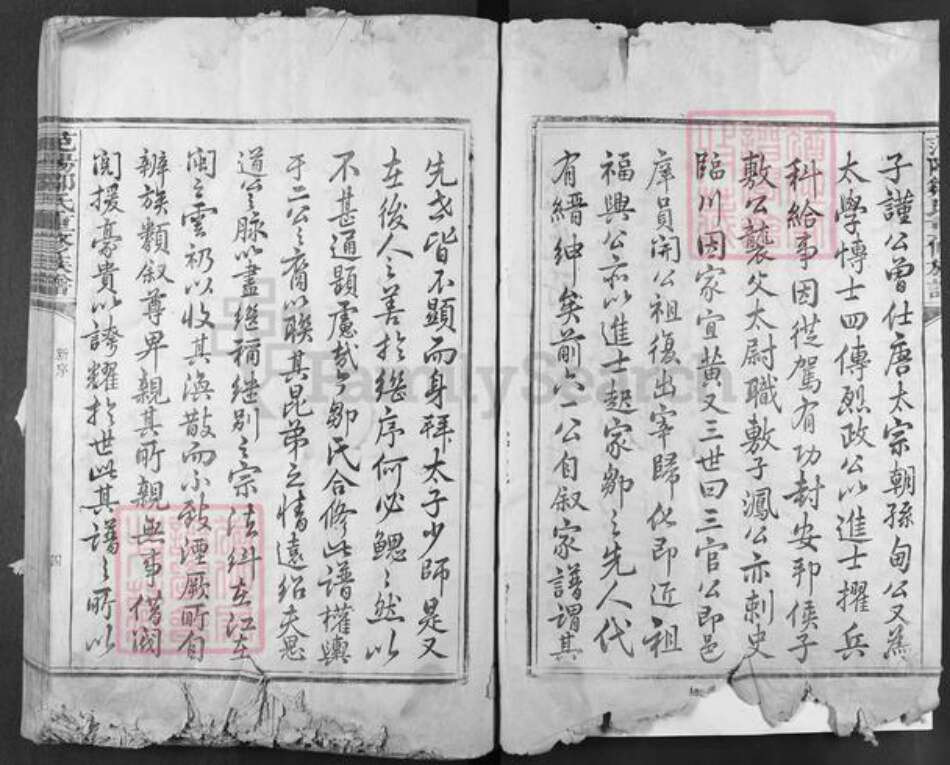 子謹公曾仕唐太宗朝孫甸公又爲
太學博士四傳熙政公以進士擢兵
科給事因從駕有功封安邦侯子
敷公襲父太尉職敷子鳳公亦刺史
臨川因家宜黄又三世曰三官公即邑
庠員開公祖復出宰歸化即近祖
福興公亦以進士起家鄒之先人代
有縉紳矣前六一公自叙家譜謂其
先世皆不顯而身拜太子少師是又
在後人之善於繼序何必鰓之然以
不甚通顯慮哉今鄒氏合修此譜權輿
于二公之裔以聯其昆弟之情遠紹夫思
道公之脉以盡繼禰继别之宗法糾在江在
閩之雲礽以收其渙散而不致湮厥所自
辨族類叙尊卑親其所親無事借閥
閱援豪貴以誇耀於世此其譜之所以
范陽鄒氏重修族譜
新序
FamilySearch